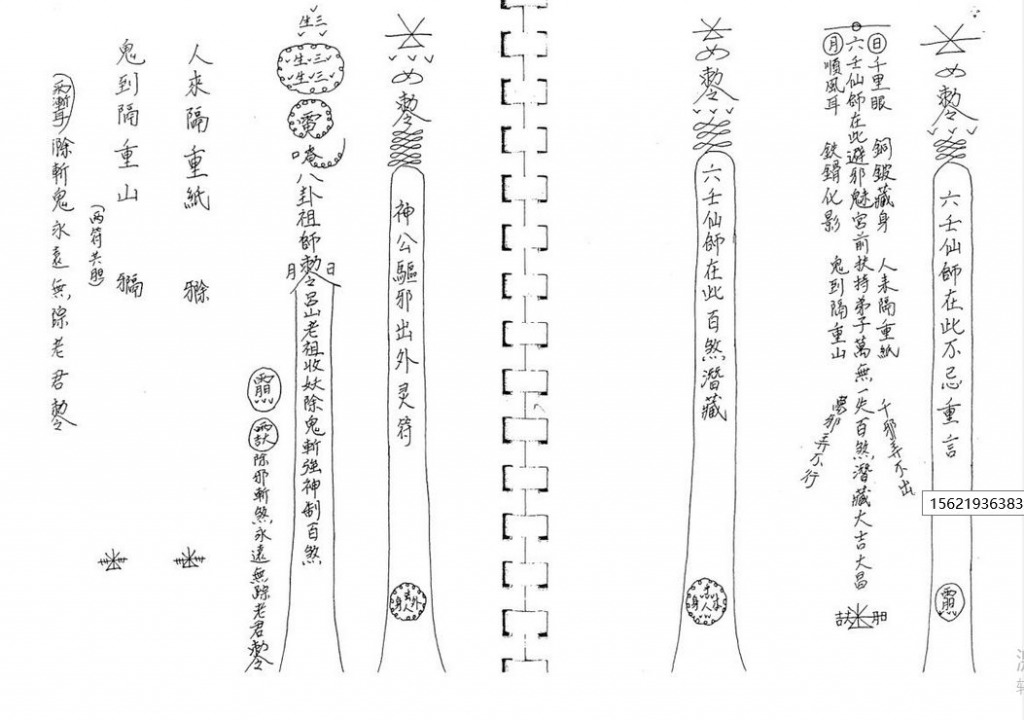 敕令
六壬仙師在此不忌重言
日 千里眼 銅鈸藏身 人来隔重紙 千邪弄不出
六壬仙師在此避邪魅宮前扶持弟子萬無一失百煞潛藏大吉大昌
月 順風耳 鉄鎖化影 鬼到隔重山 邪弄不行
敕令
六壬仙師在此百煞潛藏
敕令
神公驅邪出外灵符
外 人 身
三生
三生三生
八卦祖師敕令呂山老祖收妖除鬼斬強神制百煞
日 月
除邪斬煞永遠無踪老君敕令
人來隔重紙
鬼到隔重山
(两符共胆)
除斬鬼永遠無踪老君敕令
15621936383